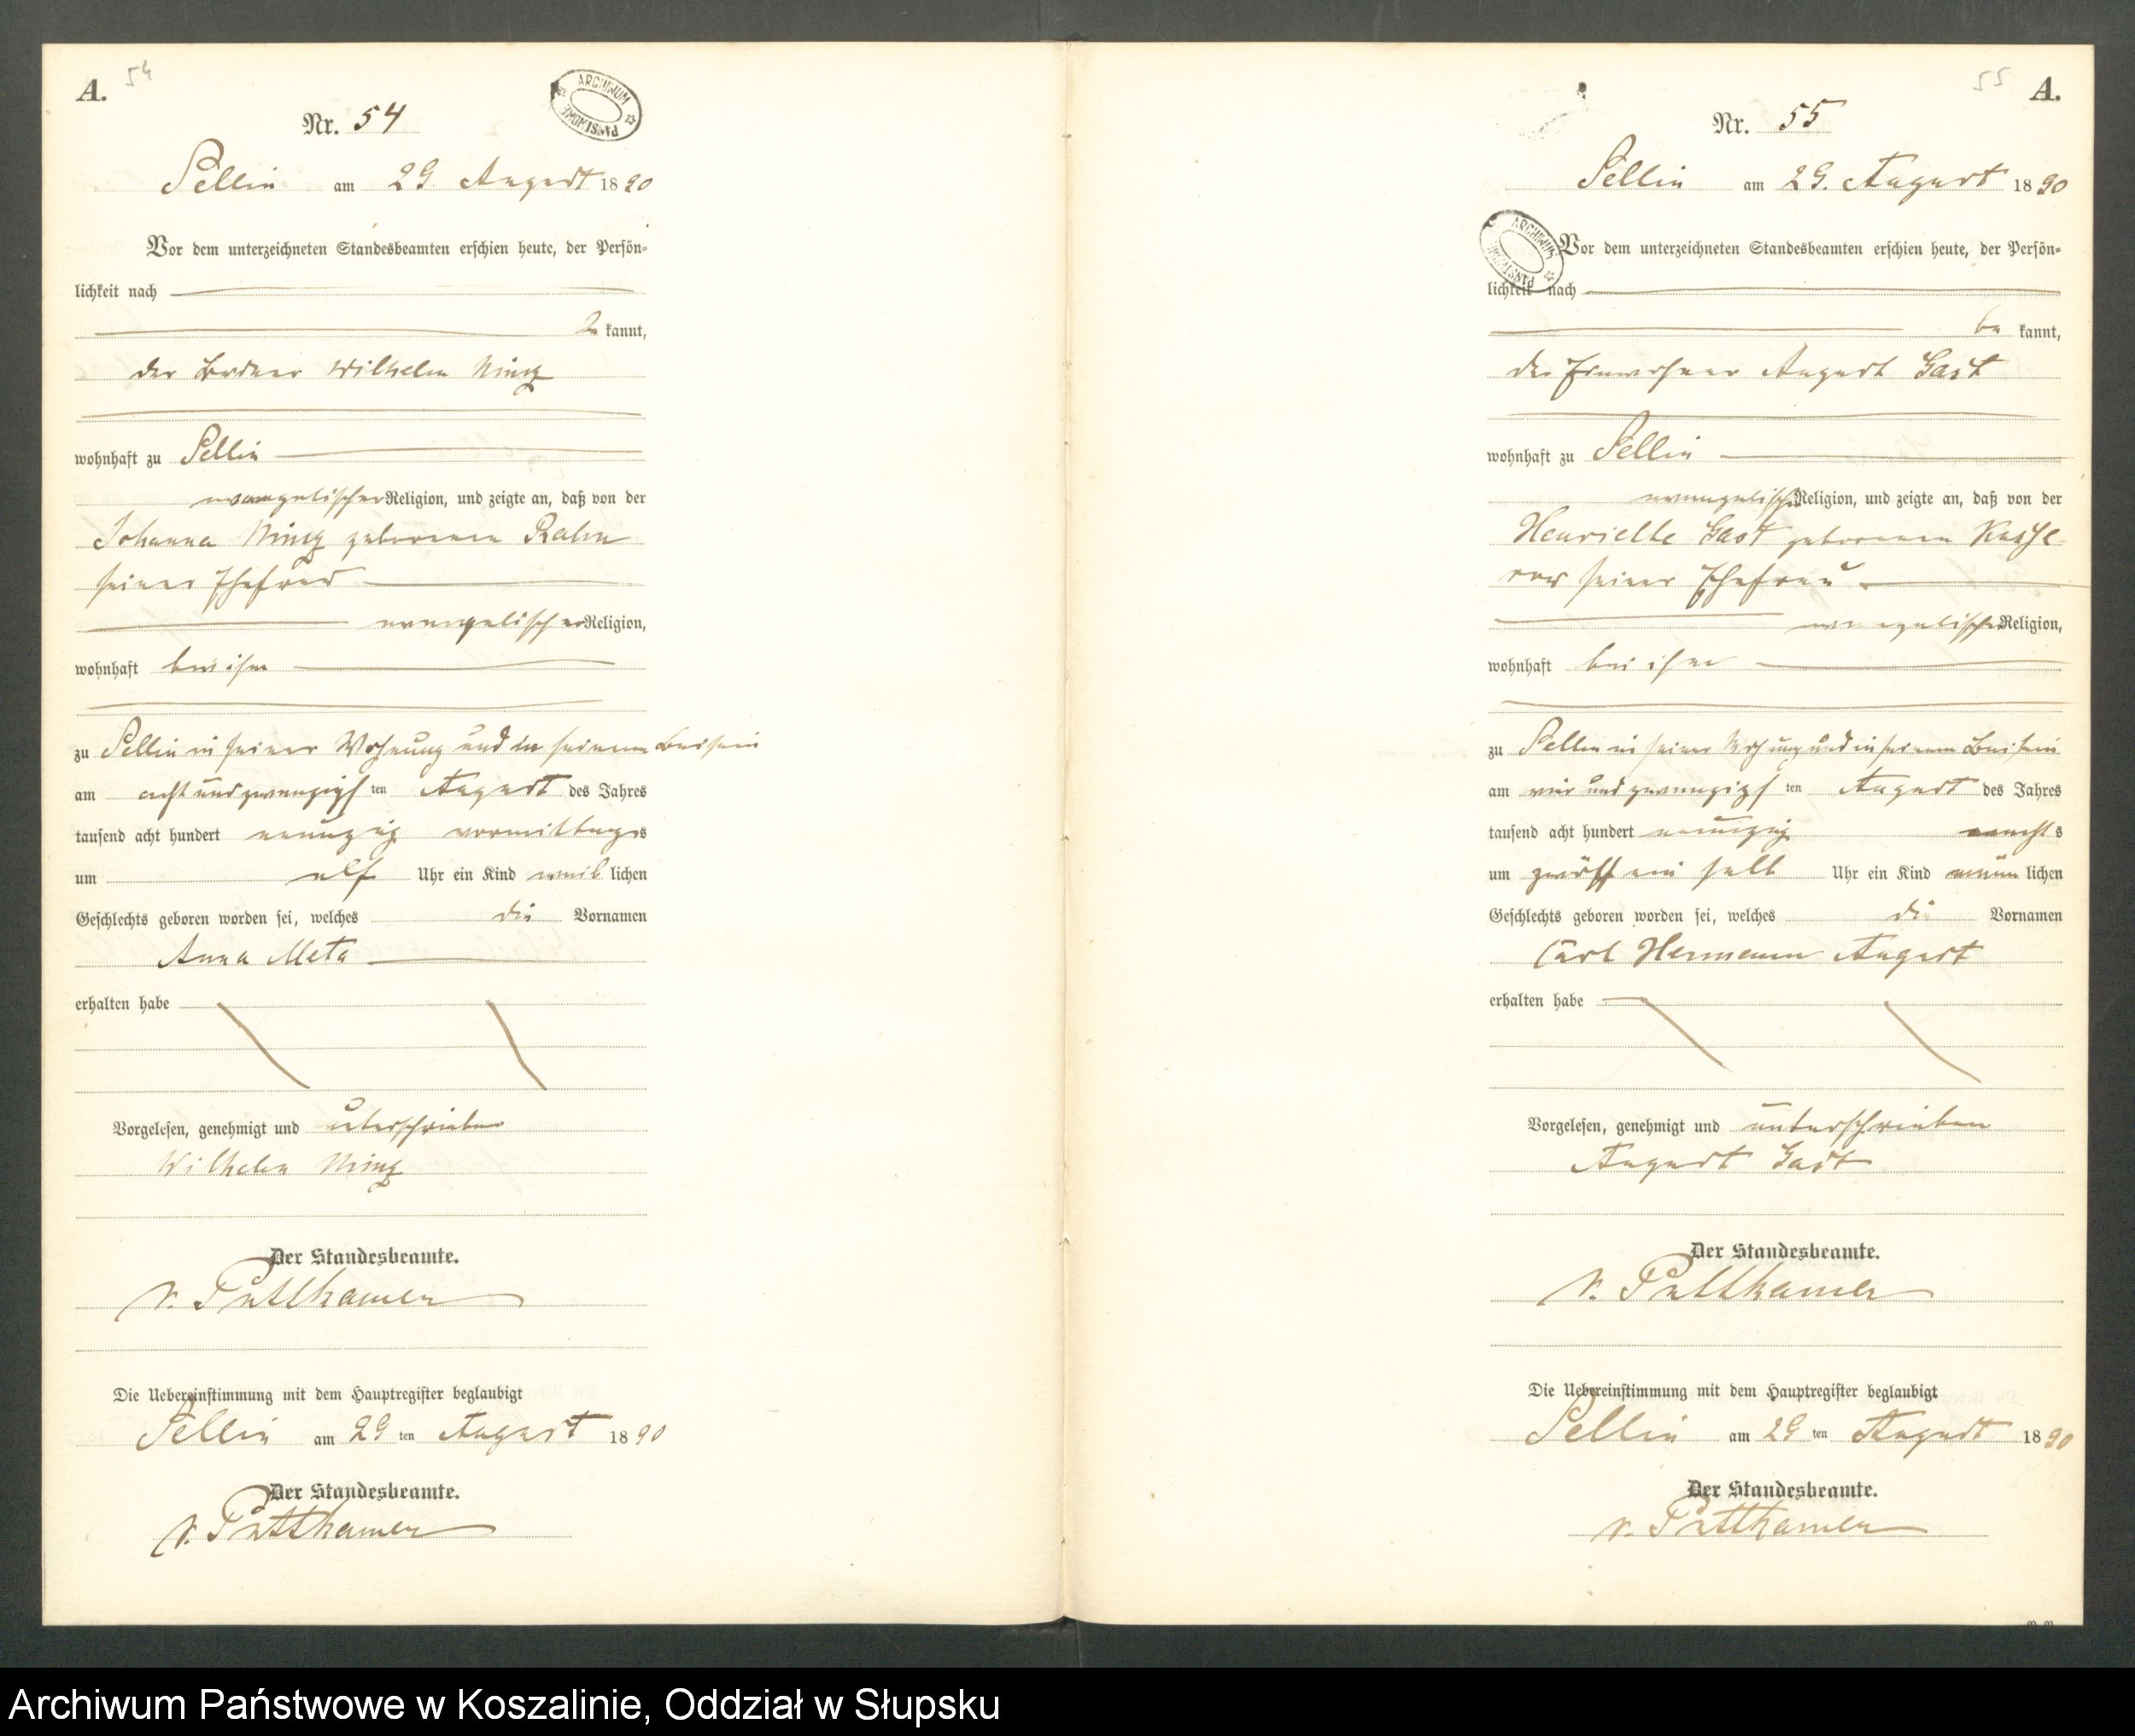 A. 54
ARCHIWUM PAŃSTWOWE
Nr. 54
Sellin am 29. August 1890
Vor dem unterzeichneten Standesbeamten erschien heute, der Persön-
lichkeit nach
be kannt,
der Büdner Wilhelm
wohnhaft zu Sellin
evangelischer Religion, und zeigte an, daß von der
Johanna geborenen Rahn
seiner Ehefrau
evangelischer Religion,
wohnhaft bei ihm
zu Sellin in seiner Wohnung und in seinem Beisein
am acht und zwanzigsten August des Jahres
tausend acht hundert neunzig vormittags
um elf Uhr ein Kind weiblichen
Geschlechts geboren worden sei, welches die Vornamen
Anna Meta
erhalten habe
Vorgelesen, genehmigt und unterschrieben
Wilhelm
Der Standesbeamte.
v. Puttkamer
Die Uebereinstimmung mit dem Hauptregister beglaubigt
Sellin am 29 ten August 1890
Der Standesbeamte.
v. Puttkamer
55 A.
Nr. 55
Sellin am 29. August 1890
ARCHIWUM PAŃSTWOWE
Vor dem unterzeichneten Standesbeamten erschien heute, der Persön-
lichkeit nach
be kannt,
der Einwohner August Gast
wohnhaft zu Sellin
evangelischer Religion, und zeigte an, daß von der
Henriette Gast geborenen
seiner Ehefrau
evangelischer Religion,
wohnhaft bei ihm
zu Sellin in seiner Wohnung und in seinem Beisein
am vier und zwanzigsten August des Jahres
tausend acht hundert neunzig nachts
um zwölf ein halb Uhr ein Kind männlichen
Geschlechts geboren worden sei, welches die Vornamen
Carl Hermann August
erhalten habe
Vorgelesen, genehmigt und unterschrieben
August Gast
Der Standesbeamte.
v. Puttkamer
Die Uebereinstimmung mit dem Hauptregister beglaubigt
Sellin am 29 ten August 1890
Der Standesbeamte.
v. Puttkamer
Archiwum Państwowe w Koszalinie, Oddział w Słupsku